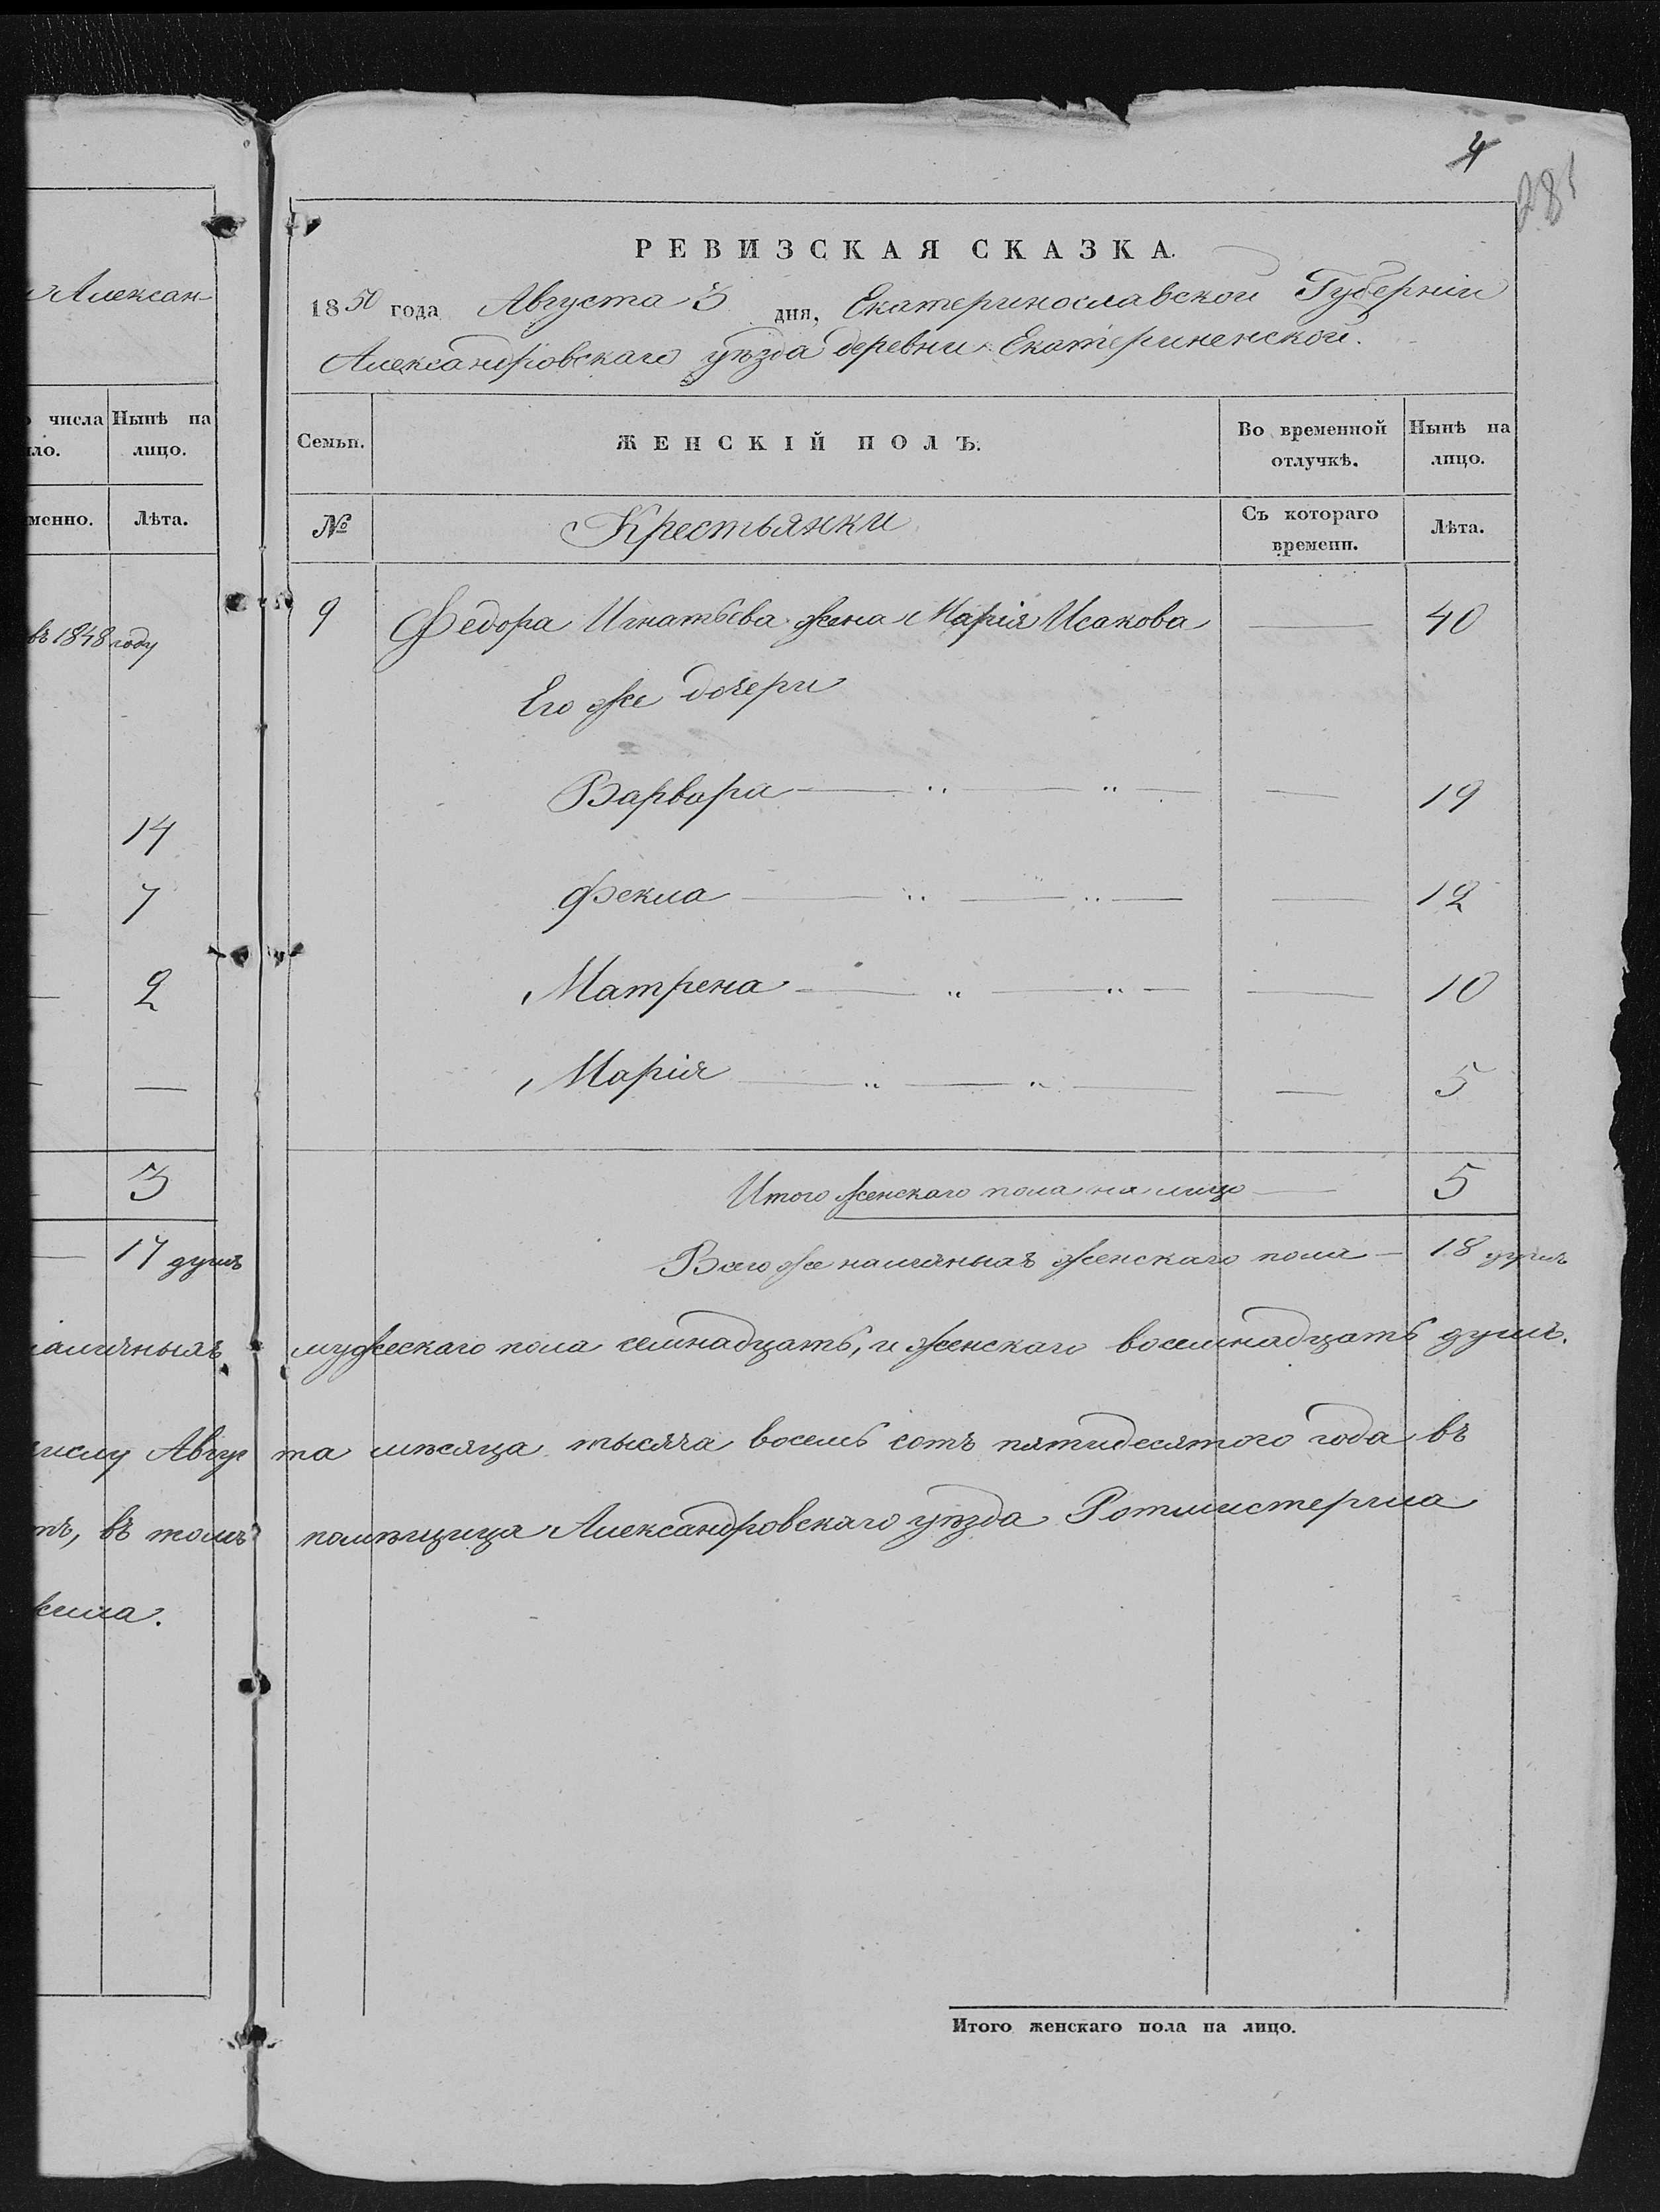 Алексан-
числа Нынѣ на
ло. лицо.
менно. Лѣта.
въ 1848 году
14
7
2
3
17 душъ
наличныхъ
числу Авгус
тъ, въ томъ
жила.
4
281
РЕВИЗСКАЯ СКАЗКА.
1850 года Августа 3 дня, Екатеринославской Губерніи
Александровскаго уѣзда деревни Екатериненской.
Семьи. ЖЕНСКІЙ ПОЛЪ. Во временной Нынѣ на
отлучкѣ. лицо.
№ Крестьянки Съ котораго Лѣта.
времени.
9 Федора Игнатьева жена Марія Исакова — 40
Его же дочери
Варвара — „ — „ — — 19
Фекла — „ — „ — — 12
Матрена — „ — „ — — 10
Марія — „ — „ — — 5
Итого женскаго пола на лицо — 5
Всего же наличныхъ женскаго пола — 18 душъ
мужескаго пола семнадцать, и женскаго восемнадцать душъ.
та мѣсяца тысяча восемь сотъ пятидесятого года въ
помѣщица Александровскаго уѣзда Ротмистерша
Итого женскаго пола на лицо.